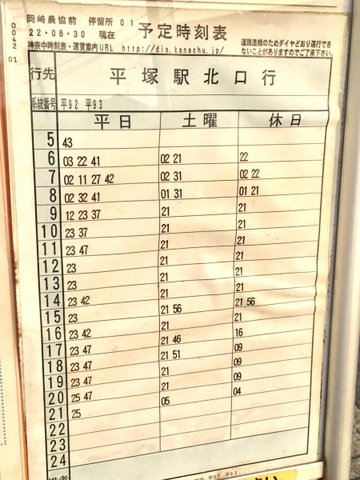 0042 01
岡崎農協前 停留所 01
22・08・30 現在
予定時刻表
神奈中時刻表・運賃案内URL http://dia.kanachu.jp/
道路混雑のためダイヤどおり運行できないことがありますのでご了承下さい。
行先 平塚駅北口行
系統番号 平92 平93
平日 土曜 休日
5 43
6 03 22 41 02 21 22
7 02 11 27 42 02 31 02 22
8 02 32 41 01 31 01 21
9 12 23 37 21 21
10 23 37 21 21
11 23 47 21 21
12 23 21 21
13 23 21 21
14 23 42 21 21
15 23 21 56 21 56
16 23 42 21 21
17 23 47 21 46 16
18 23 47 21 51 09
19 23 47 21 09
20 25 47 21 09
21 25 05 04
22
23
24